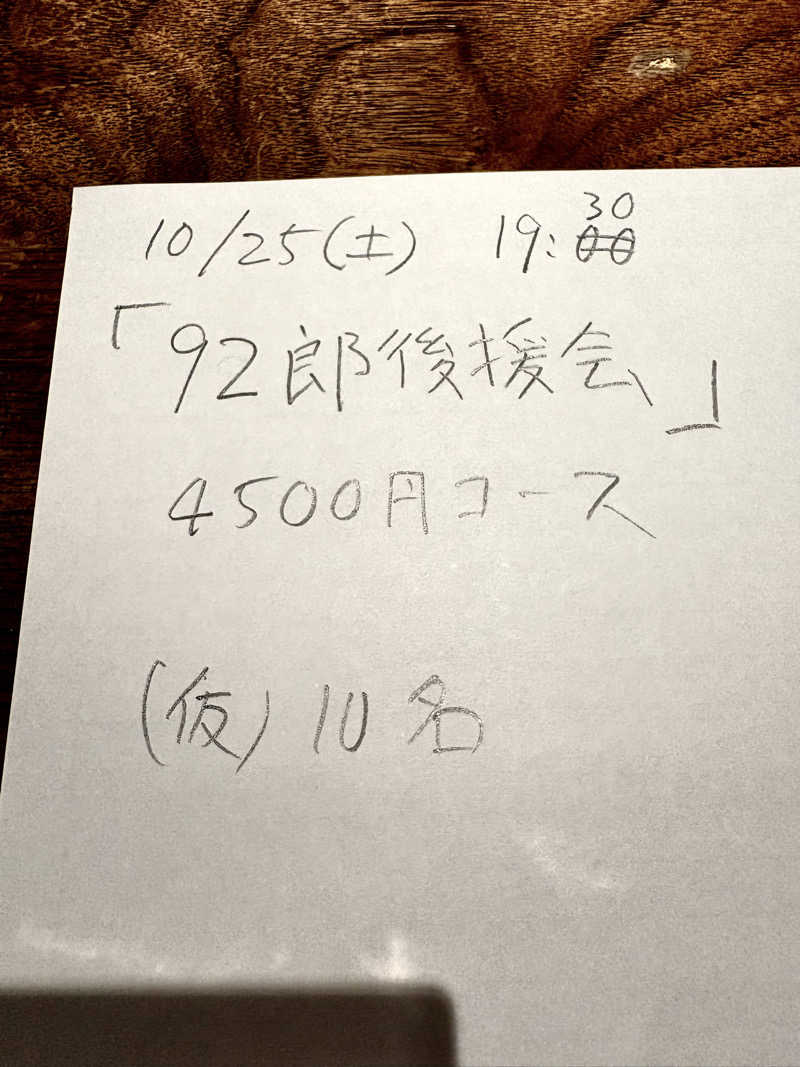 10/25(土) 19:30
「92郎後援会」
4500円コース
(仮)10名